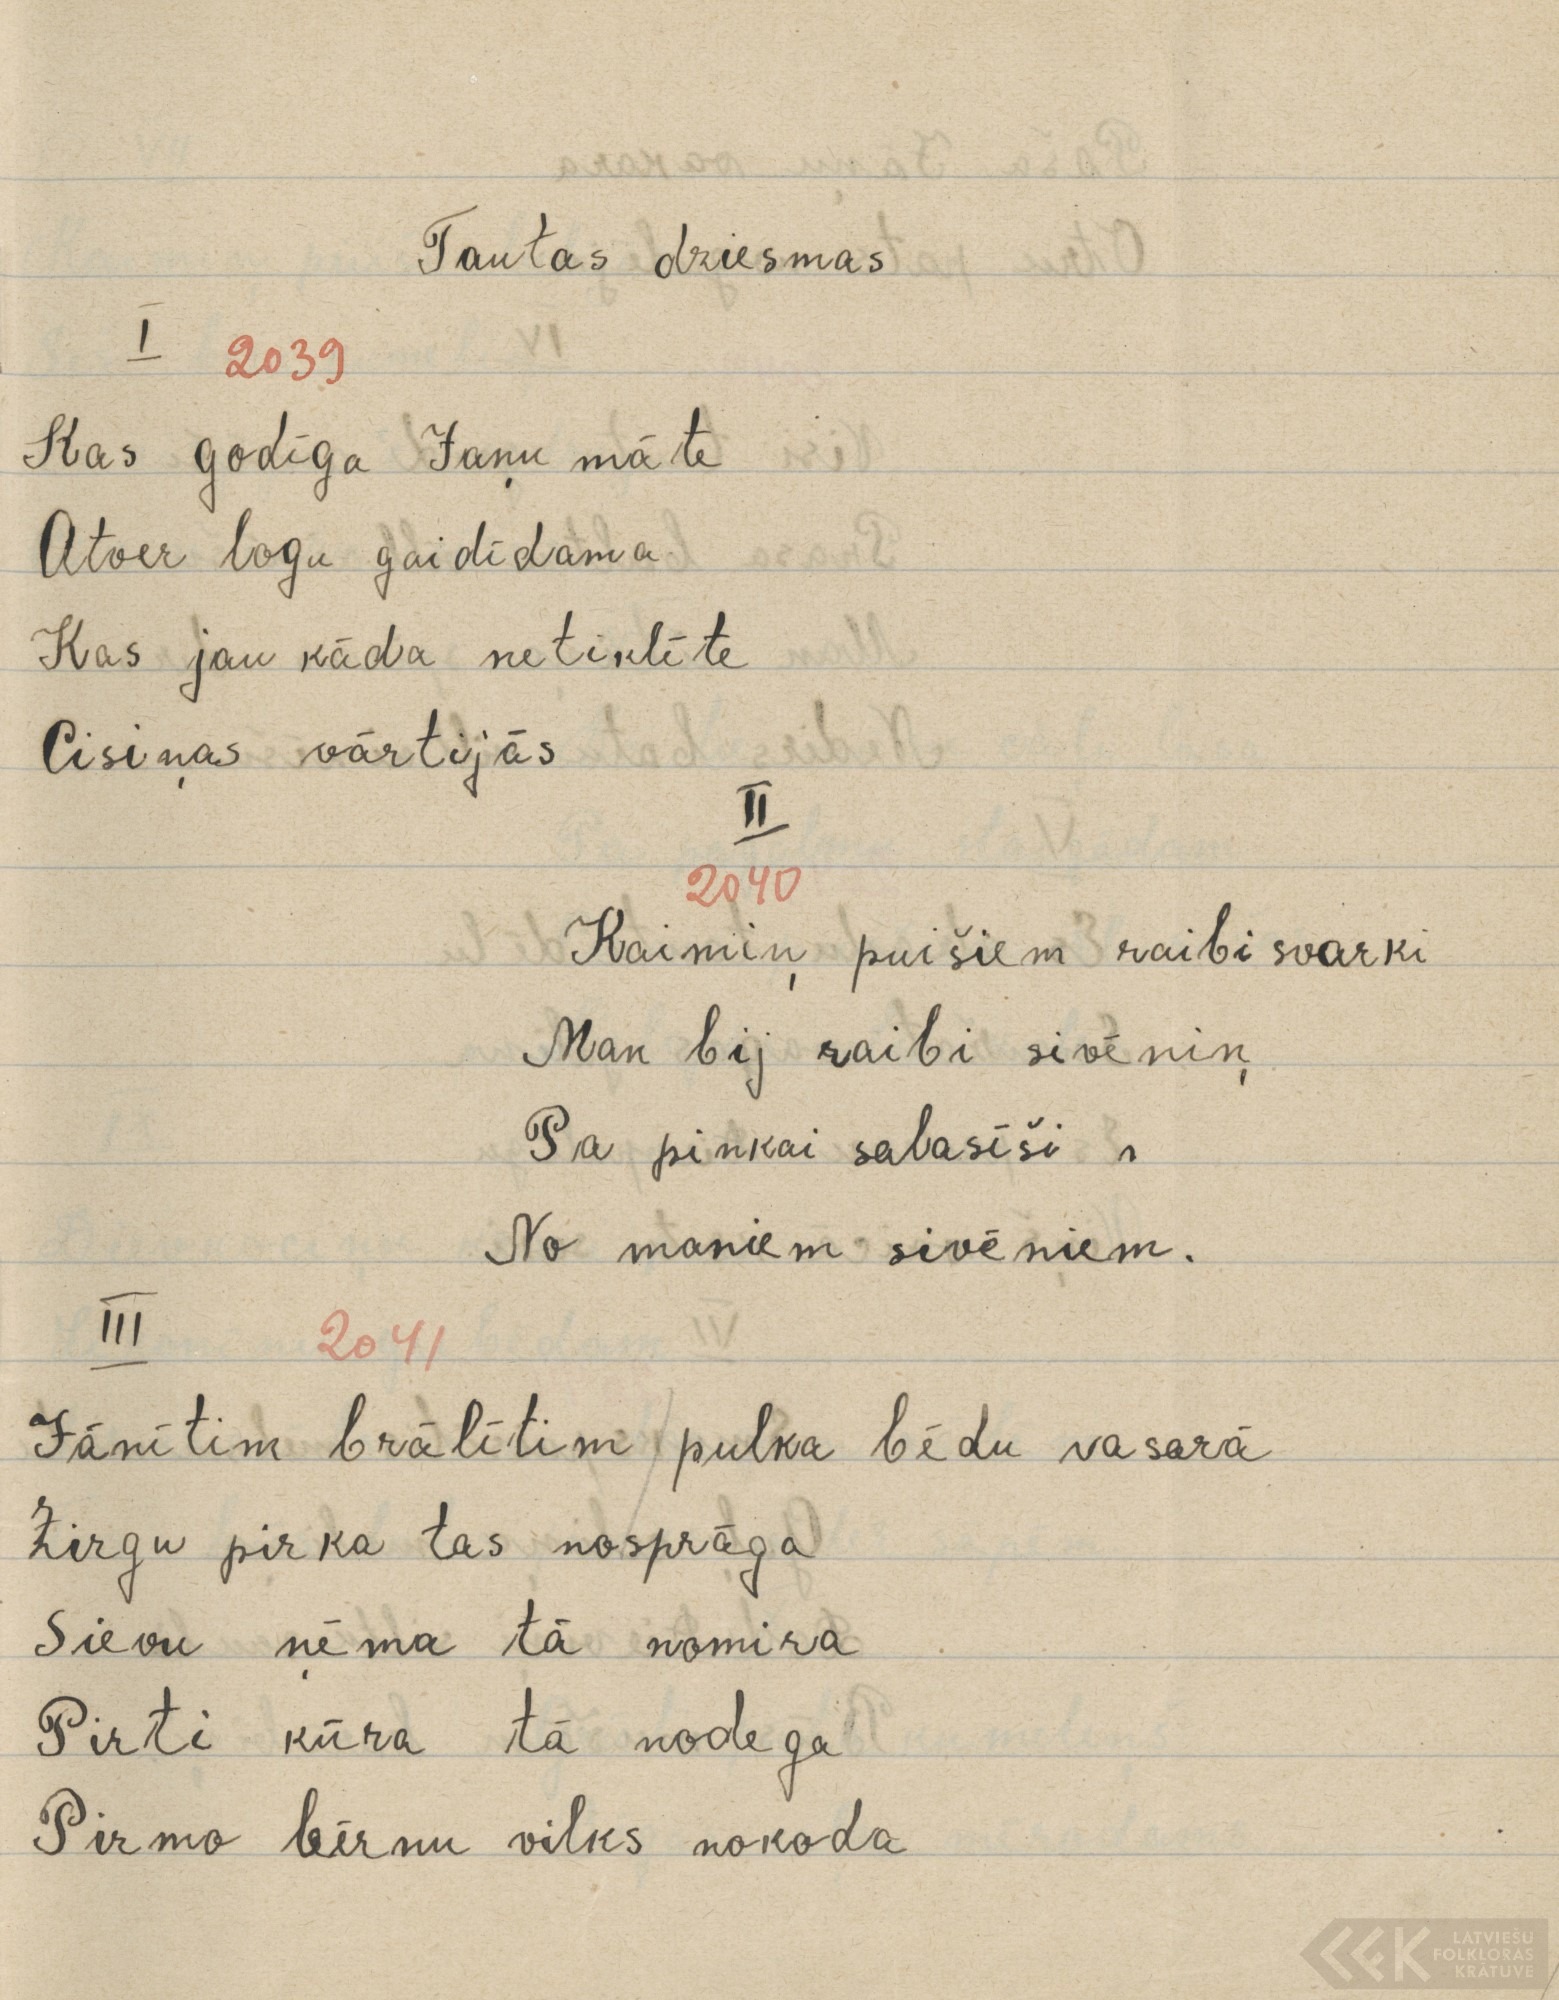 Tautas dziesmas
I 2039
Kas godīga Jaņu māte
Atver logu gaidīdama
Kas jau kāda netiklīte
Cisiņas vārtijās
II
2040
Kaimiņ puišiem raibi svarki
Man bij raibi sivēniņ
Pa pinkai salasīši
No maniem sivēņiem.
III 2041
Jānītim brālītim / pulka bēdu vasarā
Žirgu pirka tas nosprāga
Sievu ņēma tā nomira
Pirti kūra tā nodega
Pirmo bērnu vilks nokoda
LATVIEŠU
FOLKLORAS
KRĀTUVE